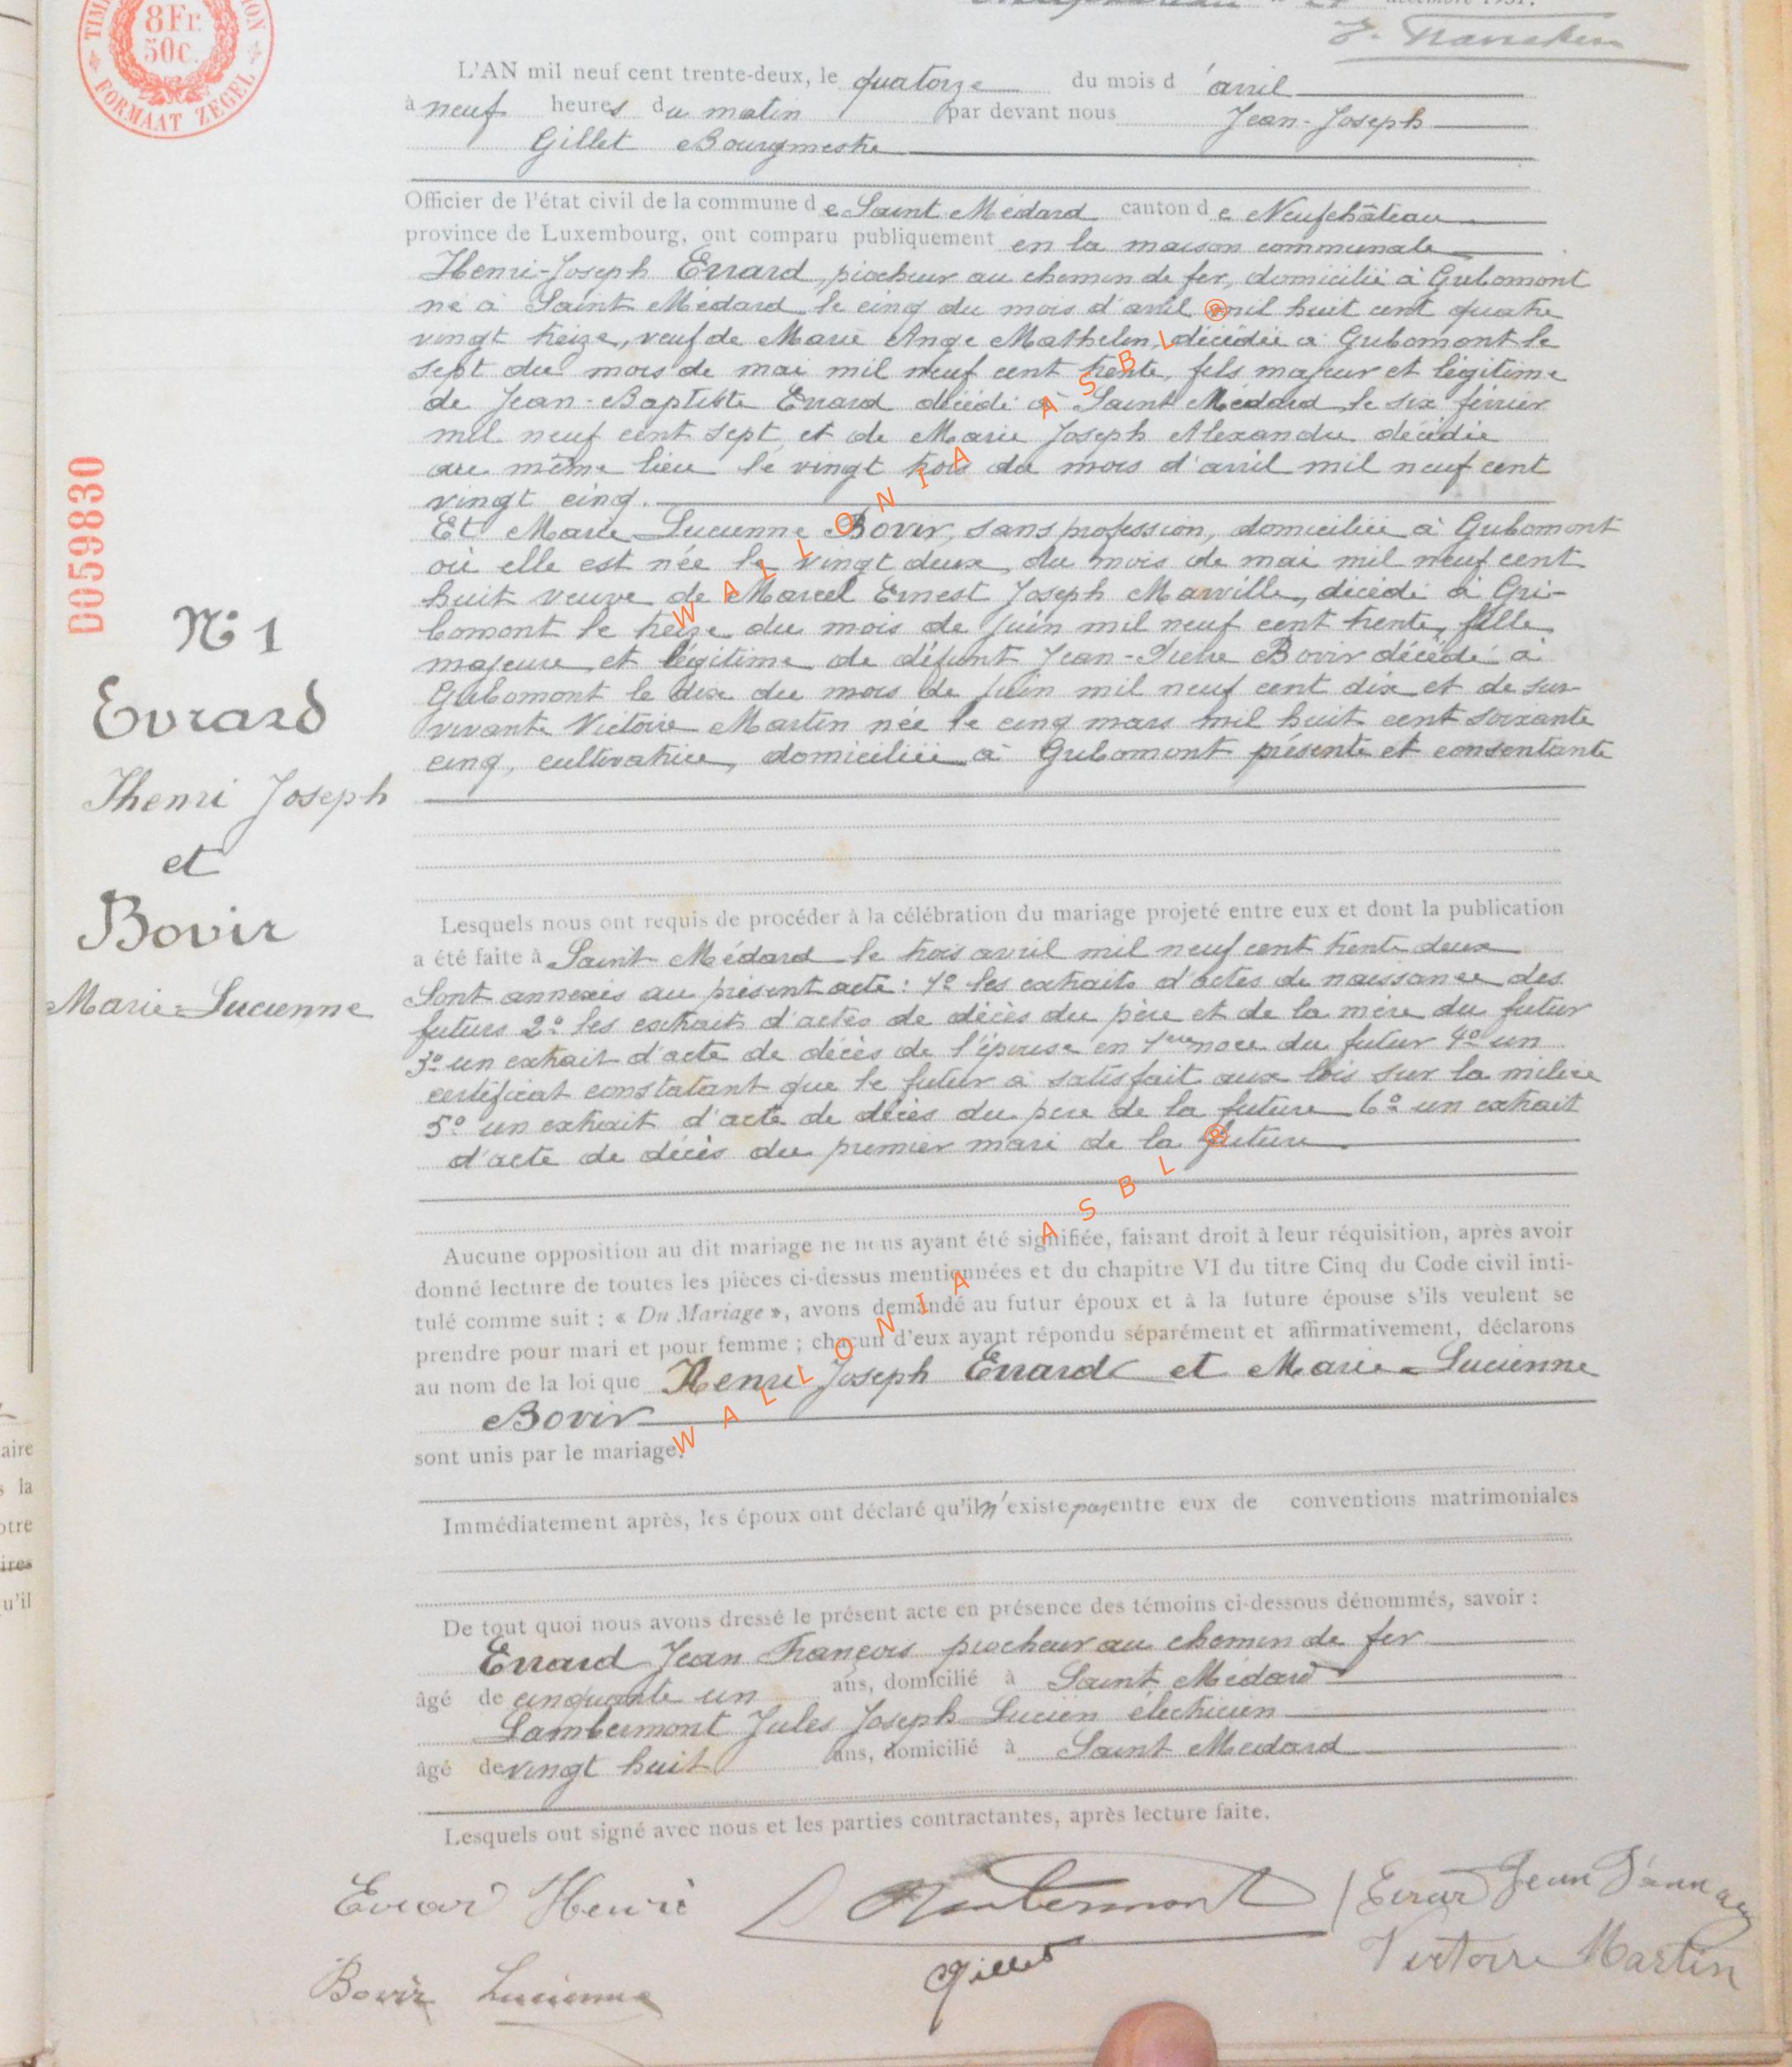 8Fr.
50c.
FORMAAT ZEGEL
décembre 1931.
L'AN mil neuf cent trente-deux, le quatorze du mois d'avril
à neuf heures du matin par devant nous Jean-Joseph
Gillet Bourgmestre
Officier de l'état civil de la commune de Saint Médard canton de Neufchâteau
province de Luxembourg, ont comparu publiquement en la maison communale
Henri-Joseph Evrard, piocheur au chemin de fer, domicilié à Gribomont
né à Saint Médard le cinq du mois d'avril mil huit cent quatre
vingt treize, veuf de Marie Ange Mathelin, décédée à Gribomont le
sept du mois de mai mil neuf cent trente, fils majeur et légitime
de Jean-Baptiste Evrard décédé à Saint Médard le six février
mil neuf cent sept et de Marie Joseph Alexandre décédée
au même lieu le vingt trois du mois d'avril mil neuf cent
vingt cinq.
Et Marie Lucienne Bovir, sans profession, domiciliée à Gribomont
où elle est née le vingt deux du mois de mai mil neuf cent
huit veuve de Marcel Ernest Joseph Marville, décédé à Gri-
bomont le treize du mois de juin mil neuf cent trente, fille
majeure et légitime de défunt Jean-Pierre Bovir décédé à
Gribomont le dix du mois de juin mil neuf cent dix et de sur-
vivante Victoire Martin née le cinq mars mil huit cent soixante
cinq, cultivatrice, domiciliée à Gribomont présente et consentante
D059830
N° 1
Evrard
Henri Joseph
et
Bovir
Marie-Lucienne
Lesquels nous ont requis de procéder à la célébration du mariage projeté entre eux et dont la publication
a été faite à Saint Médard le trois avril mil neuf cent trente deux
Sont annexés au présent acte : 1° les extraits d'actes de naissance des
futurs 2° les extraits d'actes de décès du père et de la mère du futur
3° un extrait d'acte de décès de l'épouse en 1ère noce du futur 4° un
certificat constatant que le futur a satisfait aux lois sur la milice
5° un extrait d'acte de décès du père de la future 6° un extrait
d'acte de décès du premier mari de la future
Aucune opposition au dit mariage ne nous ayant été signifiée, faisant droit à leur réquisition, après avoir
donné lecture de toutes les pièces ci-dessus mentionnées et du chapitre VI du titre Cinq du Code civil inti-
tulé comme suit : « Du Mariage », avons demandé au futur époux et à la future épouse s'ils veulent se
prendre pour mari et pour femme ; chacun d'eux ayant répondu séparément et affirmativement, déclarons
au nom de la loi que Henri Joseph Evrard et Marie-Lucienne
Bovir
sont unis par le mariage.
Immédiatement après, les époux ont déclaré qu'il n'existe pas entre eux de conventions matrimoniales
De tout quoi nous avons dressé le présent acte en présence des témoins ci-dessous dénommés, savoir :
Evrard Jean François piocheur au chemin de fer
âgé de cinquante un ans, domicilié à Saint Médard
Lambermont Jules Joseph Lucien électricien
âgé de vingt huit ans, domicilié à Saint Médard
Lesquels ont signé avec nous et les parties contractantes, après lecture faite.
Evrard Henri
Lambermont
Evrard Jean
Bovir Lucienne
Gillet
Victoire Martin
WALLONIA ASBL ®
WALLONIA ASBL ®
aire
s la
otre
ires
u'il